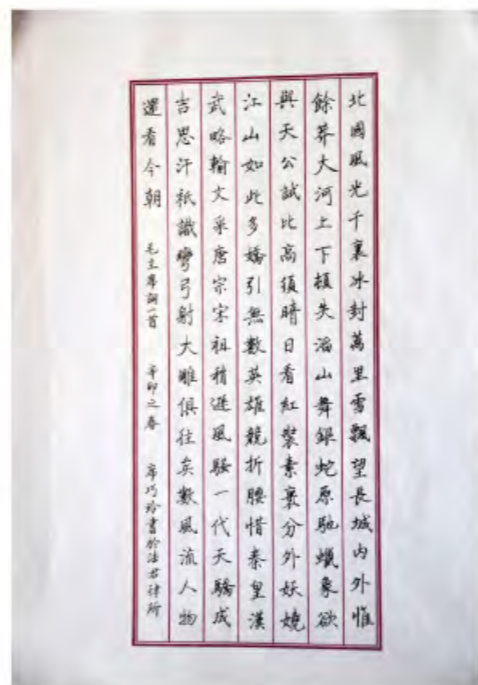 北國風光千裏冰封萬里雪飄望長城內外惟
餘莽大河上下頓失滔山舞銀蛇原馳蠟象欲
與天公試比高須晴日看紅裝素裹分外妖嬈
江山如此多嬌引無數英雄競折腰惜秦皇漢
武略輸文采唐宗宋祖稍遜風騷一代天驕成
吉思汗祇識彎弓射大雕俱往矣數風流人物
還看今朝 毛主席詞一首 辛卯之春 席巧玲書於法君律所